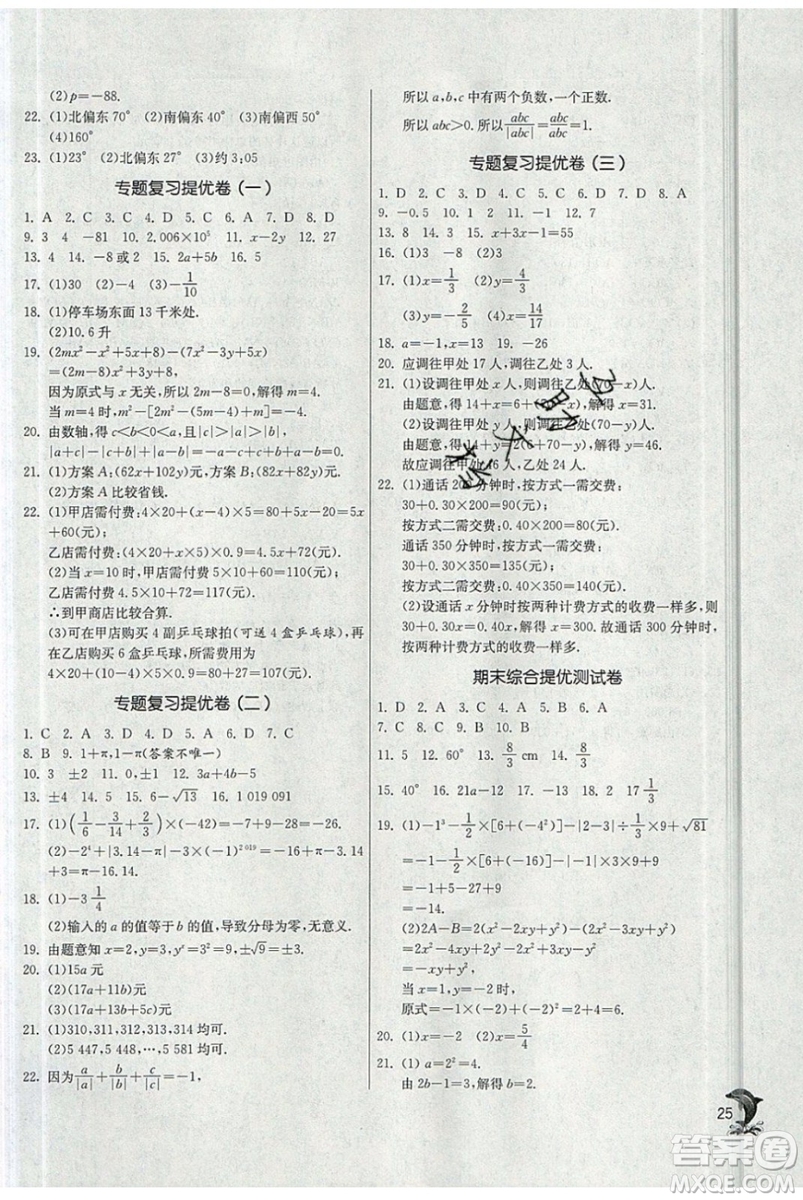 (2)p=-88.
22. (1)北偏东 70° (2)南偏东 40° (3)南偏西 50°
(4)160°
23. (1)23° (2)北偏东 (3)约 3:05
专题复习提优卷(一)
1. A 2. C 3. C 4. D 5. D 6. C 7. D 8. D
9. 3 4 -81 10. 2.006×10⁵ 11. x-2y 12. 27
13. 4 14. -8或2 15. 2a+5b 16. 5
17. (1)30 (2)-4 (3)-1/10
18. (1)停车场东面 13 千米处.
(2)10.6 升
19. (2mx²-x²+5x+8)-(7x²-3y+5x)
=(2m-8)x²+3y+8,
因为原式与 x 无关,所以 2m-8=0,解得 m=4.
当 m=4 时,m²-[2m²-(5m-4)+m]=-4.
20. 由数轴,得 c<b<0<a,且|c|>|a|>|b|,
|a+c|-|a-b|+|b+c|-|b|=-a-2c+b.
21. (1)方案 A:(62x+102y)元,方案 B:(82x+82y)元.
(2)方案 A 比较省钱.
22. (1)甲店需付费:4×20+(x-4)×5=80+5x-20=(5x
+60)(元);
乙店需付费:(4×20+x×5)×0.9=(4.5x+72)(元).
(2)当 x=10 时,甲店需付费 5×10+60=110(元);
乙店需付费 4.5×10+72=117(元).
∴到甲商店比较合算.
(3)可在甲店购买 4 副乒乓球拍(可送 4 盒乒乓球),再
在乙店购买 6 盒乒乓球,所需费用为
4×20+(10-4)×5×0.9=80+27=107(元).
专题复习提优卷(二)
1. C 2. A 3. D 4. D 5. A 6. D 7. C
8. B 9. 1+π,1-π(答案不唯一)
10. 3 ±2 11. π-3 12. 3a+4b-5
13. ±4 14. 5 15. 6-√13 16. 1 019 091
17. (1)(1/6-3/14+2/3)×(-42)=-7+9-28=-26.
(2)-2⁴+|3.14-π|×(-1)²⁰¹⁹=-16+π-3.14
+3=π-16.14.
18. (1)-3 1/4
(2)输入的 a 的值等于 b 的值,导致分母为零,无意义.
19. 由题意知 x=2,y=3,x²-y²+2z=9,±√9=±3.
20. (1)15a元
(2)(17a+11b)元
(3)(17a+12b+5c)元
21. (1)310,311,312,313,314 均可.
(2)5 447,5 448,…,5 581 均可.
22. 因为a/|a|+b/|b|+c/|c|=-1,
所以 a,b,c 中有两个负数,一个正数.
所以 abc>0.所以abc/|abc|=abc/abc=1.
专题复习提优卷(三)
1. D 2. C 3. D 4. C 5. B 6. D 7. D 8. A
9. -0.5 10. 1 2 11. -16 12. 7
13. 8 14. 3 15. x+3x-1=55
16. (1)3 -8 (2)3
17. (1)x=1/3 (2)y=4/3
(3)y=-2/5 (4)x=14/17
18. a=-1,x=13 19. -26
20. 应调往甲处 17 人,调往乙处 3 人.
21. (1)设调往甲处 x 人,则调往乙处(70-x)人.
由题意,得 14+x=6+(70-x),解得 x=31.
(2)设调往甲处 y 人,则调往乙处(70-y)人.
由题意,得 14+y=2(6+70-y),解得 y=46.
故应调往甲处 46 人,乙处 24 人.
22. (1)通话 200 分钟时,按方式一需交费:
30+0.30×200=90(元);
按方式二需交费:0.40×200=80(元);
通话 350 分钟时,按方式一需交费:
30+0.30×350=135(元);
按方式二需交费:0.40×350=140(元).
(2)设通话 x 分钟时按两种计费方式的收费一样多,则
30+0.30x=0.40x,解得 x=300.故通话 300 分钟时,
按两种计费方式的收费一样多.
期末综合提优测试卷
1. D 2. C 3. D 4. B 5. A 6. A
7. C 8. C 9. B 10. B
11. 5 12. 60° 13. 8/3 cm 14. 8/3
15. 40° 16. 21a-12 17. -13 18. 2 17 1/3
19. (1)-1³-1/2×[6+(-4²)]-|2-3|÷1/3×9+√81
=-1-1/2×[6+(-16)]-|-1|×3×9+9
=-1+5-27+9
=-14.
(2)2A-B=2(x²-xy+y²)-(-2xy+y²)
=2x²-2xy+2y²+2xy-y²
=2x²+y².
当 x=-1,y=2 时,
原式=2×(-1)²+2²=6.
20. (1)x=-2 (2)x=5/4
21. (1) a=2²=4.
由 2b-1=3,解得 b=2.
25
互助文档
答案圈
MXQE.COM